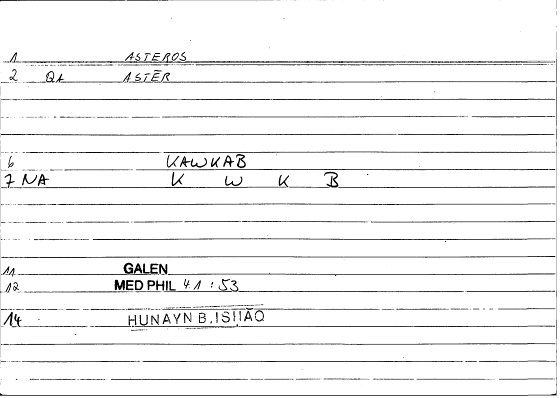 1 ASTEROS
2 QA ASTĒR
6 KAWKAB
7 NA K W K B
11 GALEN
12 MED PHIL 41 : 53
14 HUNAYN B. ISHAQ